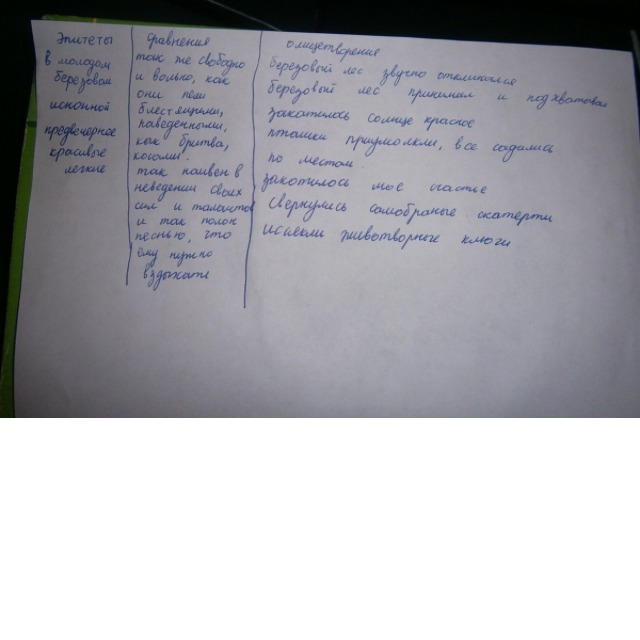 эпитеты
в молодом
березовом
исконной
предвечернее
красивые
легкие
сравнения
так же свободно
и вольно, как
они пели
блестящими,
наведенными,
как бритва,
косами.
так наивен в
неведении своих
сил и талантов
и так полон
песнью, что
ему нужно
вздыхать
олицетворения
березовый лес звучно откликался
березовый лес принимал и подхватывал
закатилось солнце красное
пташки приумолкли, все садились
по местам.
закотилось мое счастье
Свернулись самобраные скатерти
Иссякли животворные ключи